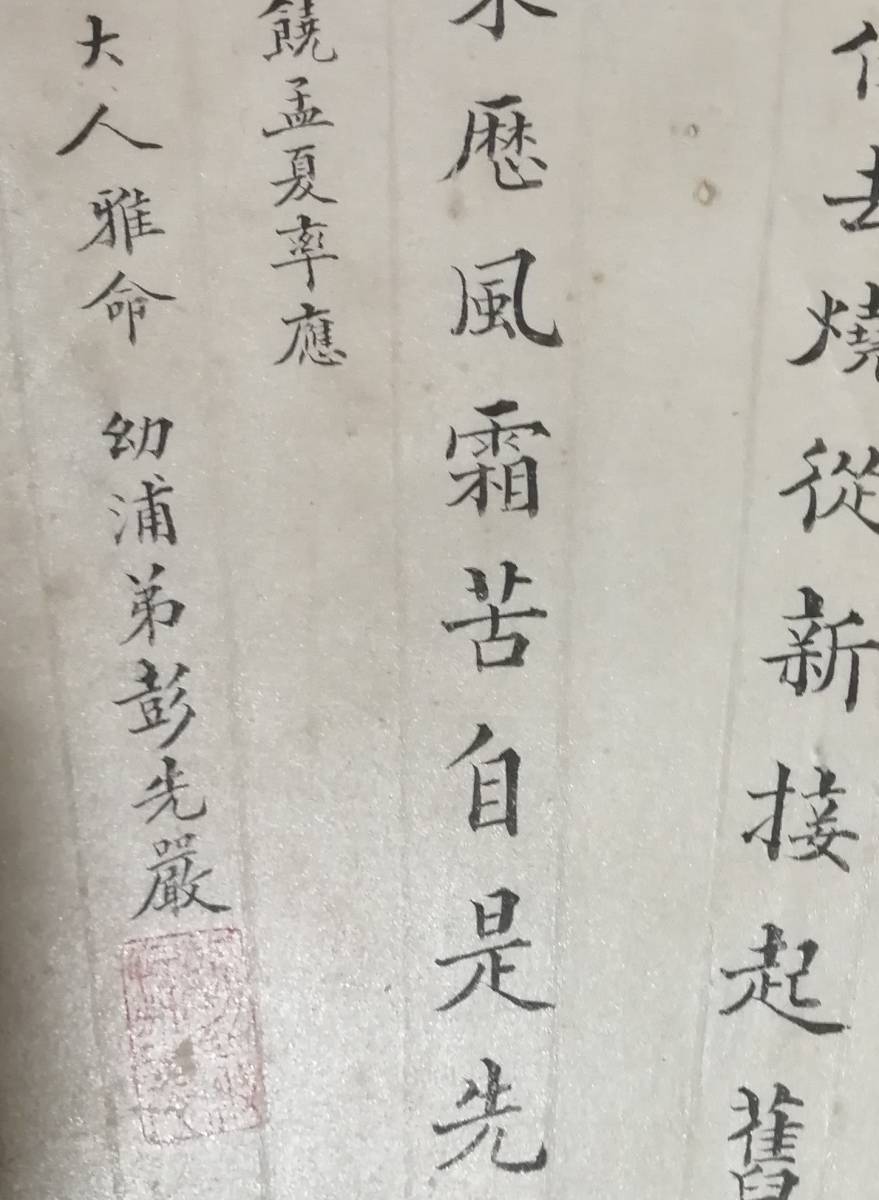 去燒從新接起舊
歷風霜苦自是先
饒孟夏率應
大人雅命 幼浦弟彭先嚴